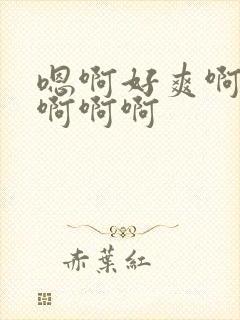 嗯啊好爽啊
啊啊啊
赤葉紅